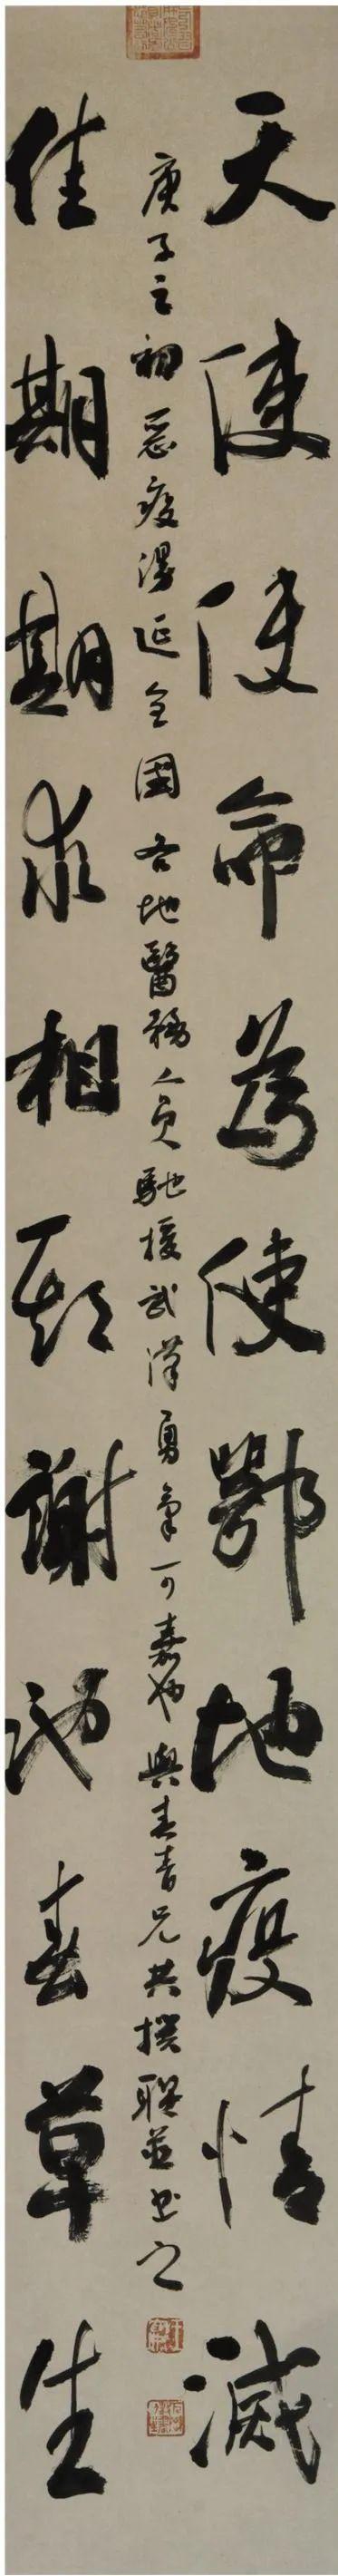 天使使命為使鄂地疫情滅
庚子之初惡疫漫延全國各地醫務人員馳援武漢勇氣可嘉也與春青兄共撰聯並書之
佳期期求相期謝池春草生